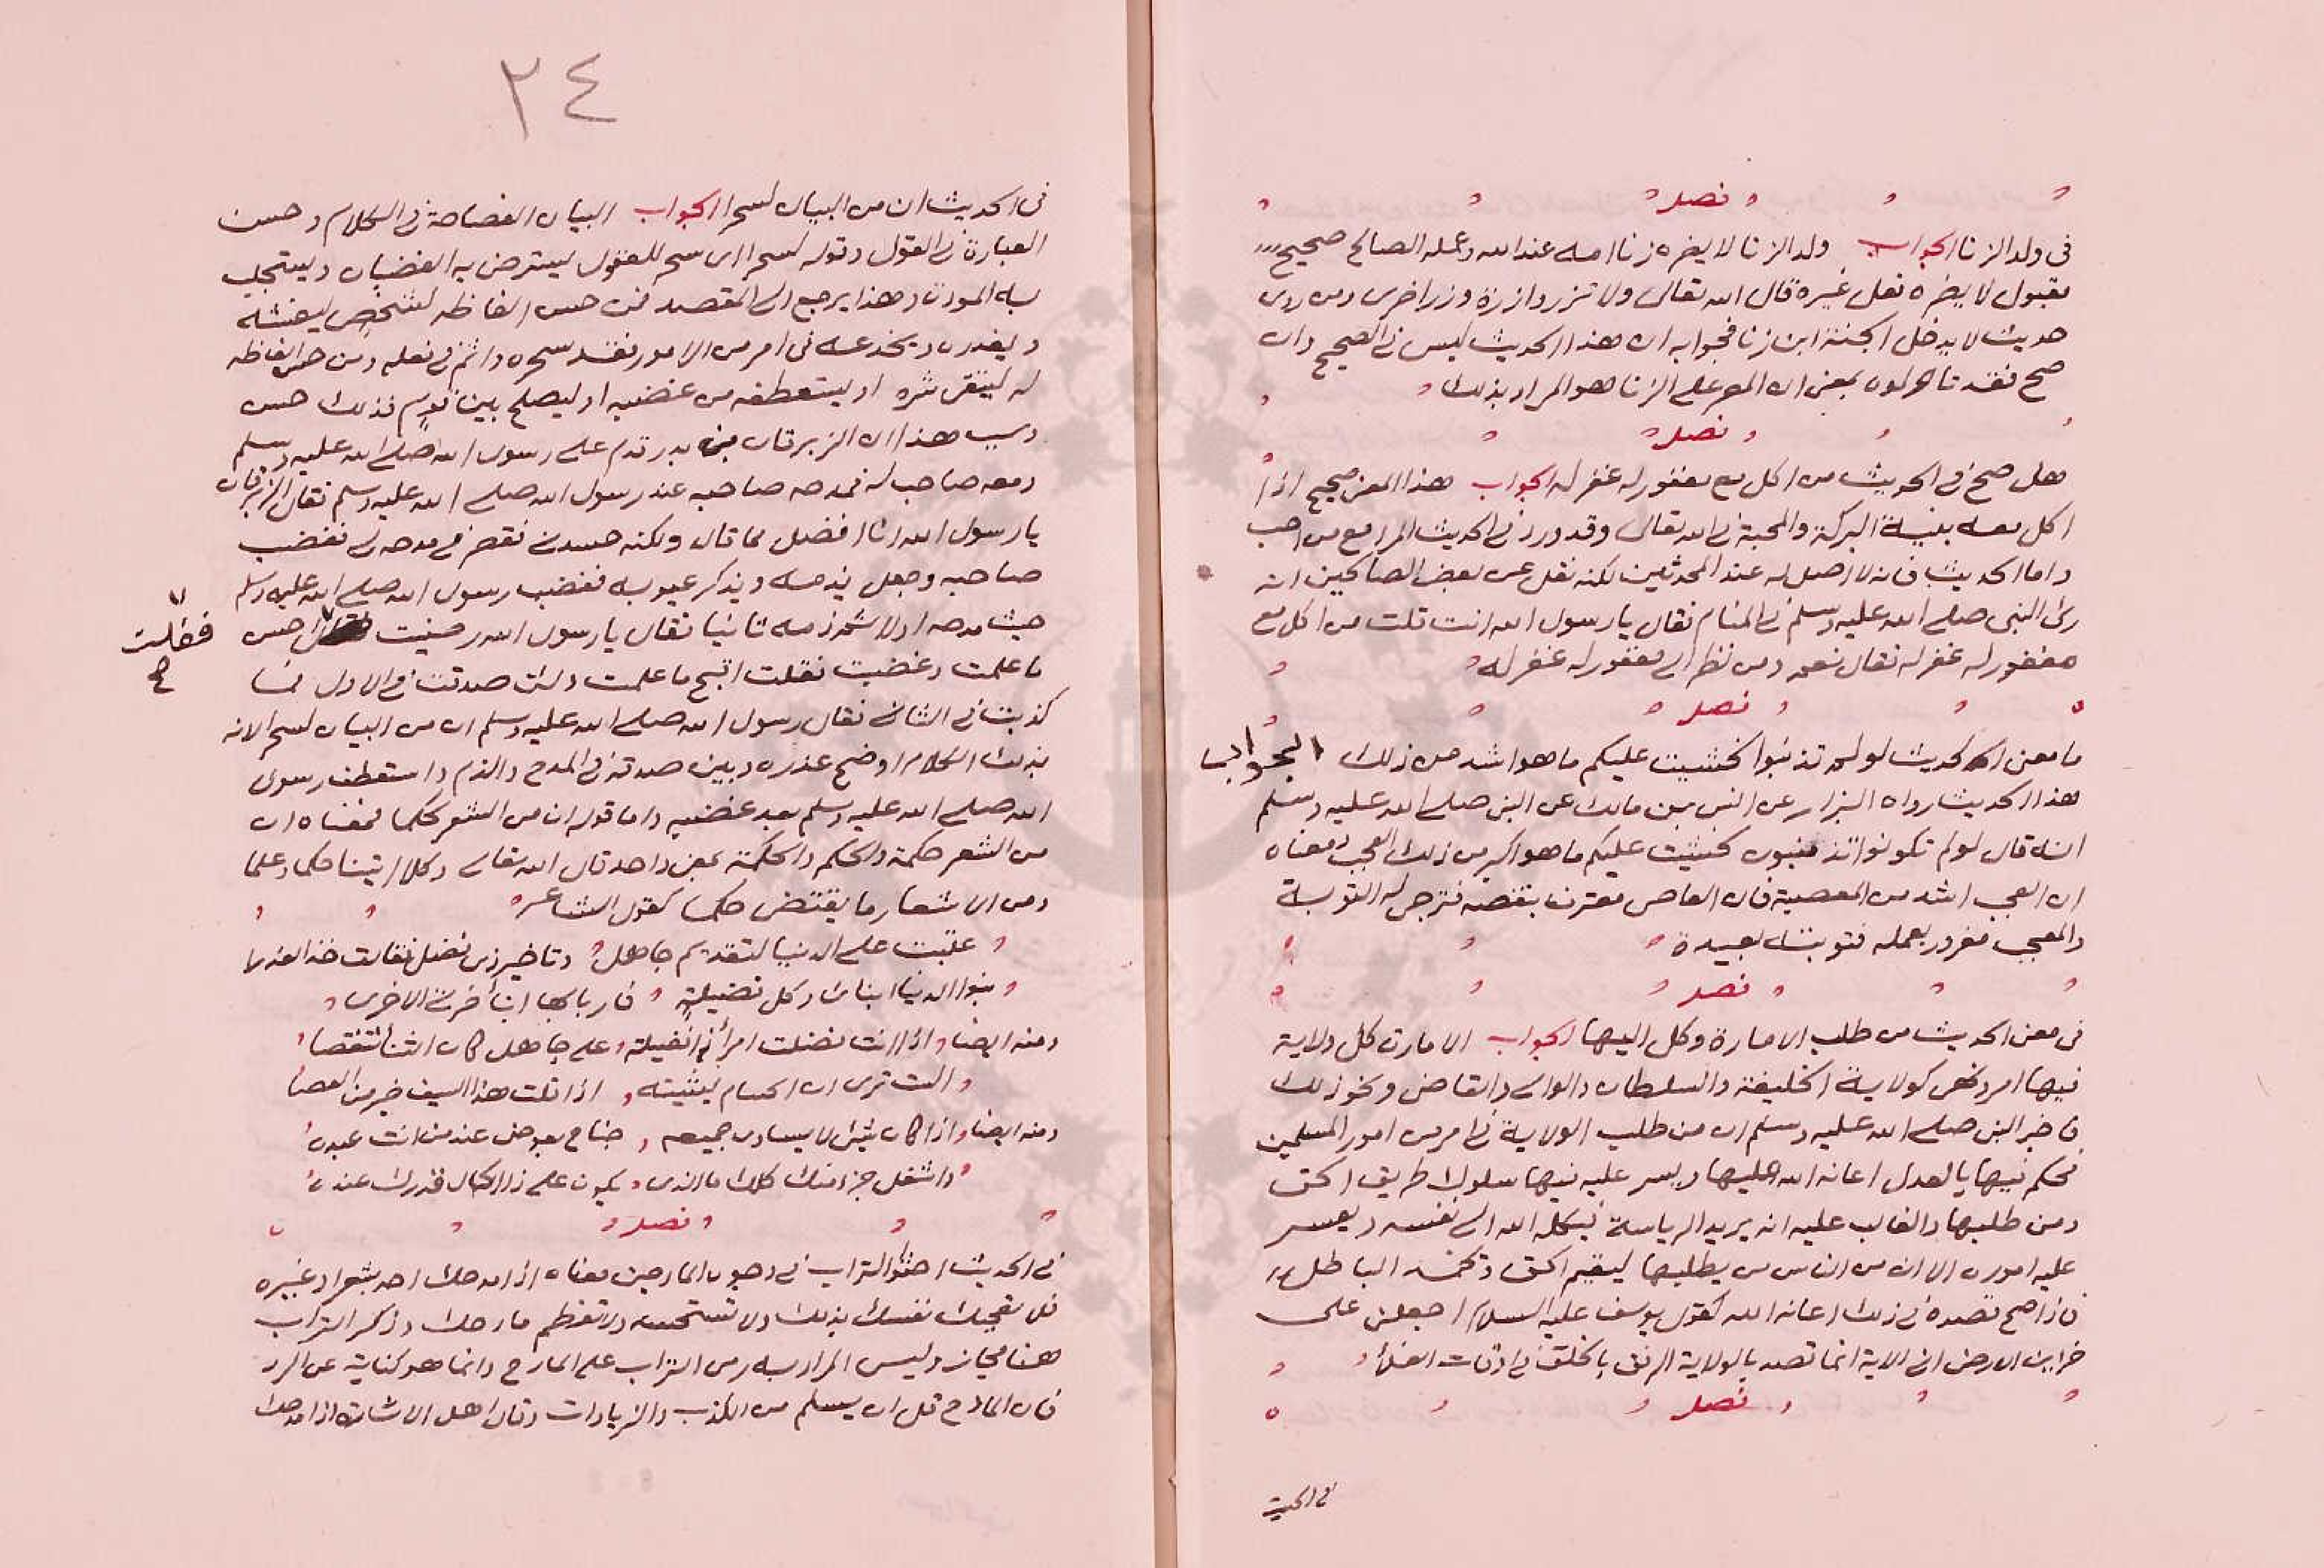 فصل
في ولد الزنا الجواب ولد الزنا لا يضره زنا امه عند الله وعمله الصالح صحيح
مقبول لا يضره فعل غيره قال الله تعالى ولا تزر وازرة وزر اخرى ومن روى
حديث لا يدخل الجنة ابن زنا فجوابه ان هذا الحديث ليس في الصحيح وان
صح فقد تأولوه بمعنى ان المصر على الزنا هو المراد بذلك
فصل
هل صح في الحديث من اكل مع مغفور له غفر له الجواب هذا المعنى صحيح اذا
اكل معه بنية البركة والمحبة في الله تعالى وقد ورد في الحديث المرء مع من احب
واما الحديث فانه لا اصل له عند المحدثين لكنه نقل عن بعض الصالحين انه
رأى النبي صلى الله عليه وسلم في المنام فقال يا رسول الله انت قلت من اكل مع
مغفور له غفر له فقال نعم ومن نظر الى مغفور له غفر له
فصل
ما معنى الحديث لو لم تذنبوا لخشيت عليكم ما هو اشد من ذلك الجواب
هذا الحديث رواه البزار عن انس بن مالك عن النبي صلى الله عليه وسلم
انه قال لو لم تكونوا تذنبون لخشيت عليكم ما هو اكبر من ذلك العجب ومعناه
ان العجب اشد من المعصية فان العاصي معترف بنقصه فترجى له التوبة
والمعجب مغرور بعمله فتوبته بعيدة
فصل
في معنى الحديث من طلب الامارة وكل اليها الجواب الامارة كل ولاية
فيها امر ونهى كولاية الخليفة والسلطان والوالي والقاضي ونحو ذلك
فاخبر النبي صلى الله عليه وسلم ان من طلب الولاية في امر من امور المسلمين
فحكم فيها بالعدل اعانه الله عليها ويسر عليه فيها سلوك طريق الحق
ومن طلبها والغالب عليه انه يريد الرياسة فيكله الله الى نفسه ويعسر
عليه اموره الا ان من الناس من يطلبها ليقيم الحق ويخمد الباطل
فاذا صح قصده في ذلك اعانه الله كقول يوسف عليه السلام اجعلني على
خزاين الارض اني الاية انما قصد بالولاية الرفق بالخلق في اوقات الغلاء
فصل
في الحديث
٢٤
في الحديث ان من البيان لسحرا الجواب البيان الفصاحة في الكلام وحسن
العبارة في القول وقوله لسحرا اى سحر للعقول ليسترضى به الغضبان ويستجلب
به المودة وهذا يرجع الى المقصد فمن حسن الفاظه لشخص ليغشه
ويغدره ويخدعه في امر من الامور فقد سحره واثم في فعله ومن حسن الفاظه
له ليتقى شره او يستعطفه من غضبه او ليصلح بين قوم فذلك حسن
وسبب هذا ان الزبرقان بن بدر قدم على رسول الله صلى الله عليه وسلم
ومعه صاحب له فمدحه صاحبه عند رسول الله صلى الله عليه وسلم فقال الزبرقان
يا رسول الله انا افضل مما قال ولكنه حسدني فقصر في مدحه لى فغضب
صاحبه وجعل يذمه ويذكر عيوبه فغضب رسول الله صلى الله عليه وسلم
حيث مدحه اولا ثم ذمه ثانيا فقال يا رسول الله رضيت احسن
فقلت
ما علمت وغضبت فقلت اقبح ما علمت ولئن صدقت في الاول فما
كذبت في الثانى فقال رسول الله صلى الله عليه وسلم ان من البيان لسحرا لانه
بذلك الكلام اوضح عذره وبين صدقه في المدح والذم واستعطف رسول
الله صلى الله عليه وسلم بعد غضبه واما قوله ان من الشعر لحكما فمعناه ان
من الشعر حكمة والحكم والحكمة بمعنى واحد قال الله تعالى وكلا اتينا حكما وعلما
ومن الاشعار ما يقتضى حكما كقول الشاعر
عتبت على الدنيا لتقديم جاهل وتاخير ذى فضل فقالت خذ العذرا
بنوا الدنيا ابنائى وكل فضيلة فاربابها ابناء ضرتى الاخرى
ومنه ايضا اذا انت فضلت امرأ ذا فضيلة على جاهل كان الثنا تنقصا
الست ترى ان الحسام يشينه اذا قلت هذا السيف خير من العصا
ومنه ايضا اذا كان شئ لا يساوى جميعه جناح بعوض عند من انت عبده
واشغل جزء منك كلك ما الذى يكون على ذا الحال قدرك عنده
فصل
في الحديث احثوا التراب في وجوه المادحين معناه اذا مدحك احد بشعر او غيره
فلا تعجبك نفسك بذلك ولا تستحسنه ولا تعظم مادحك وذكر التراب
هنا مجاز وليس المراد به رمى التراب على المادح وانما هو كناية عن الرد
فان المادح قل ان يسلم من الكذب والزيادات وقال اهل الاشارة اذا مدحك